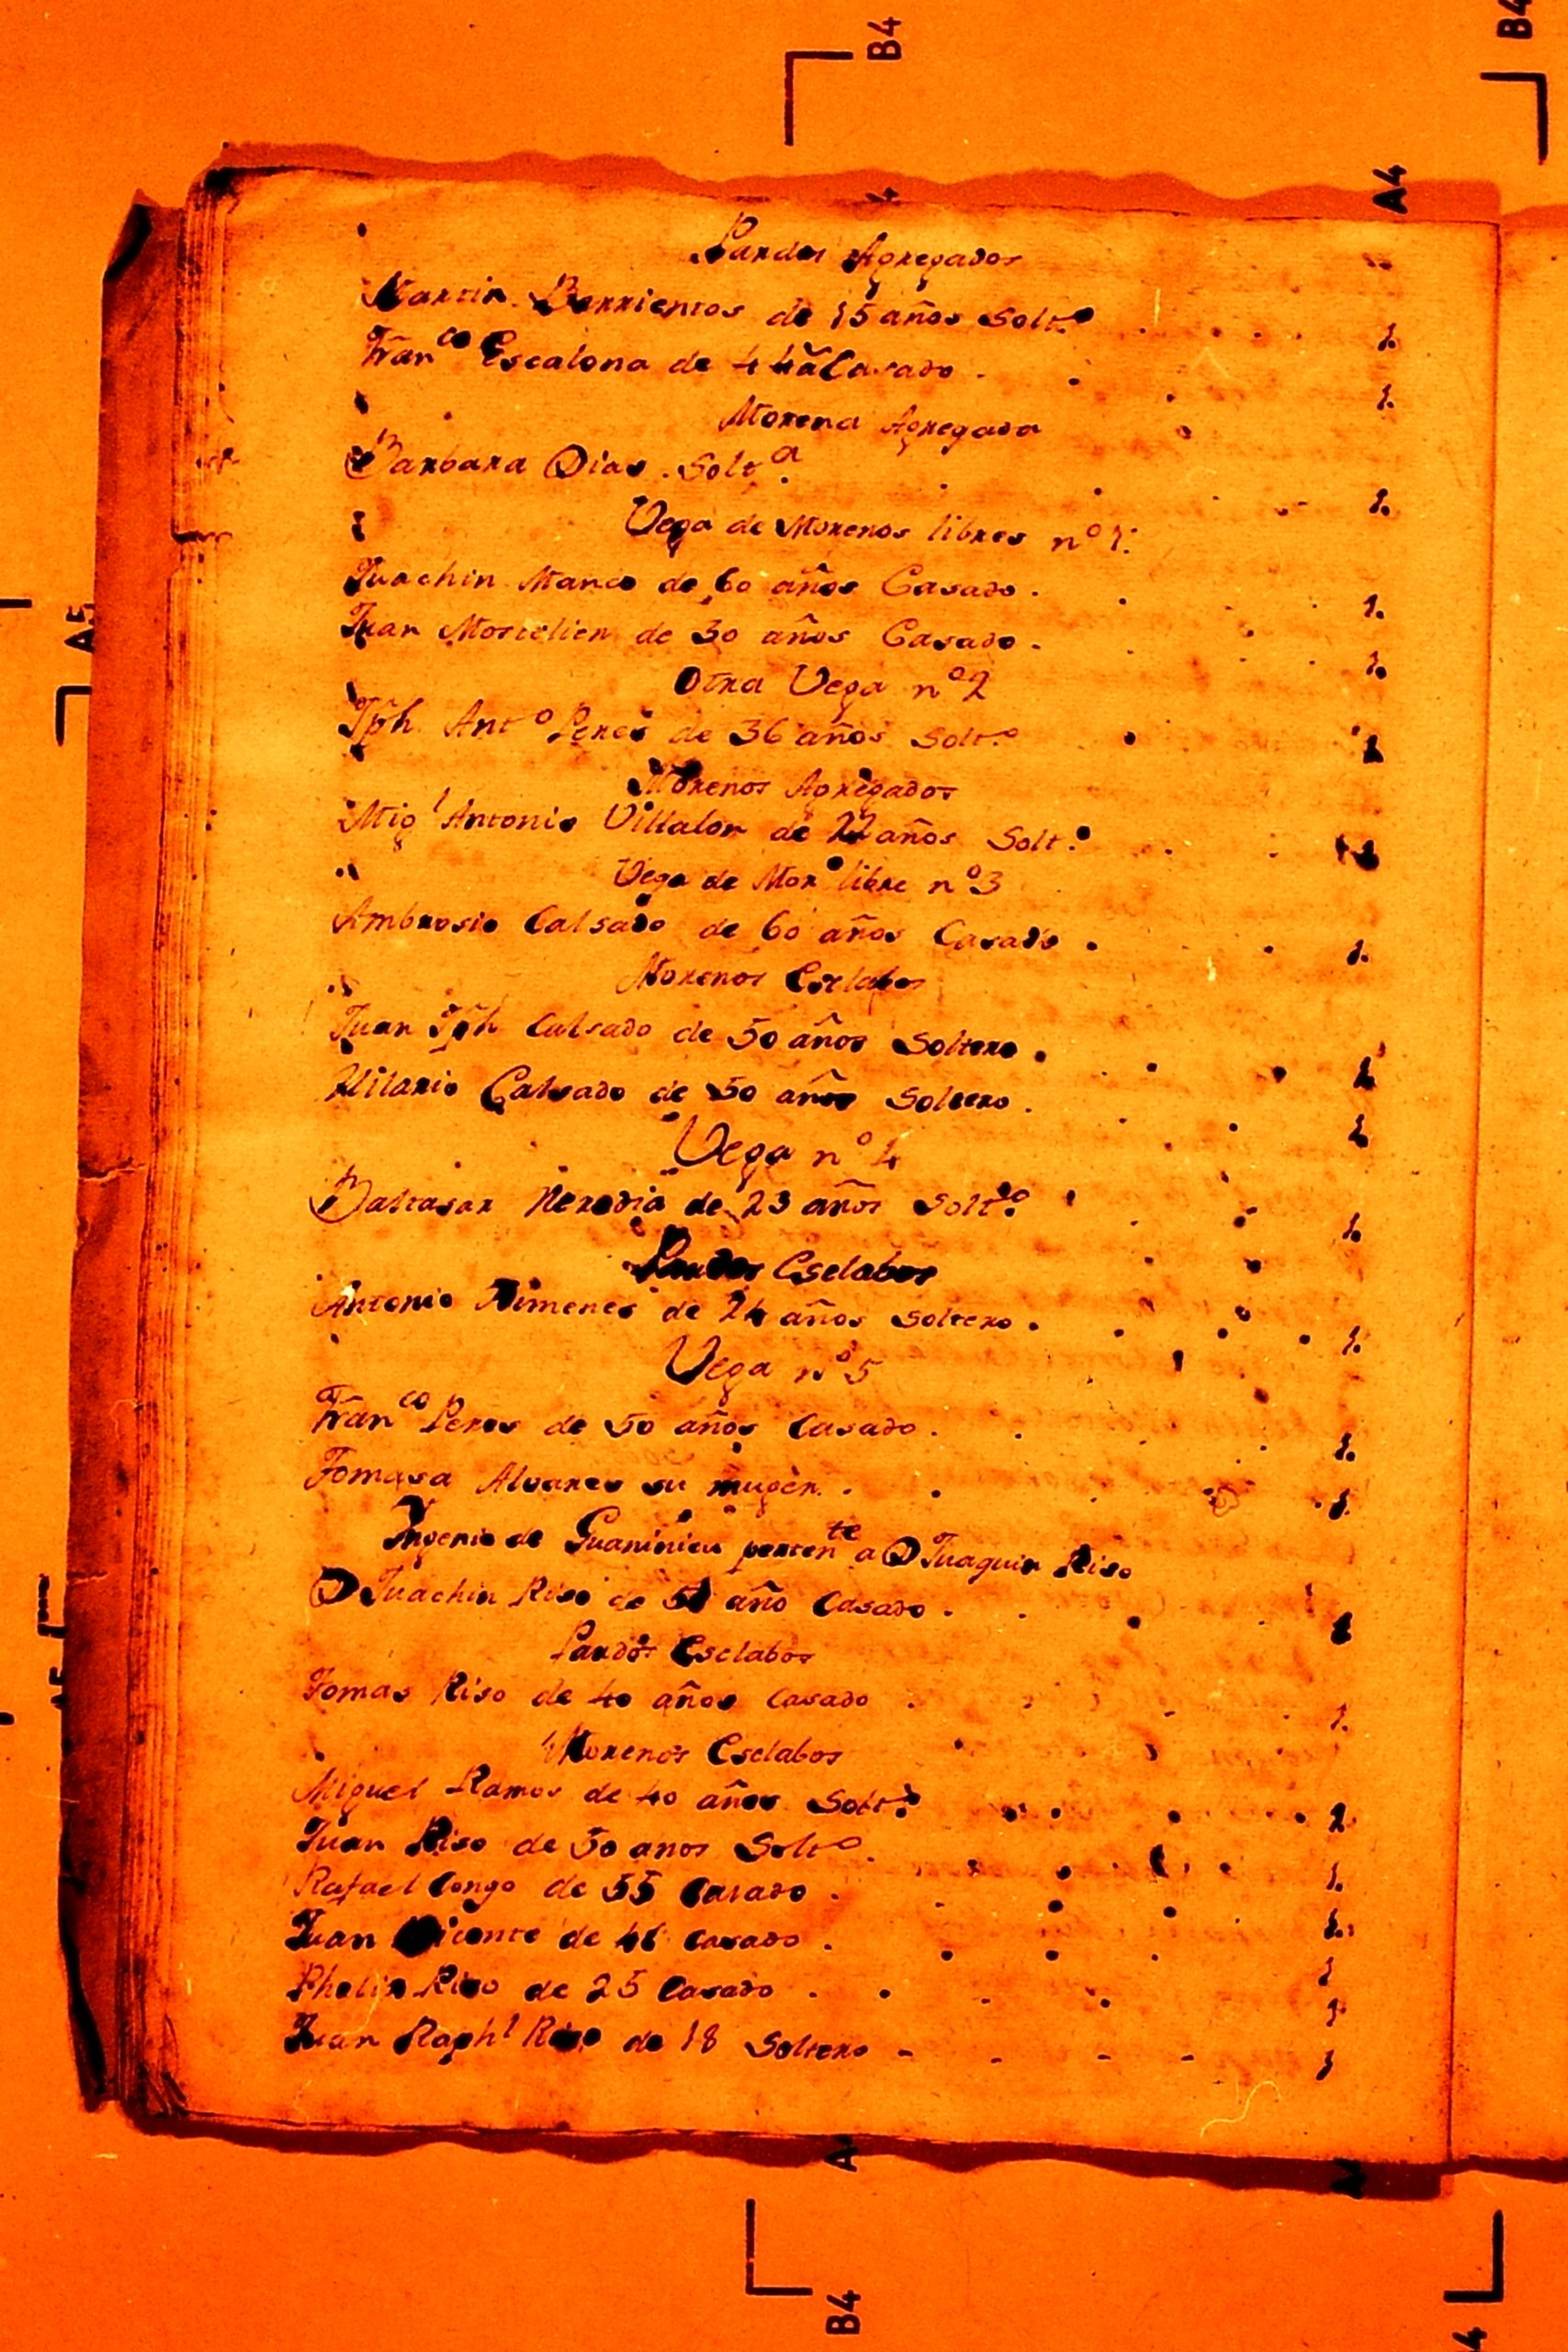 Pardos Agregados
Martin Barrientos de 15 años Solt.o 1.
Franco Escalona de 44 a Casado 1.
Morena Agregada
Barbara Dias Solt.a 1.
Vega de Morenos libres no 1.
Juachin Manco de 60 años Casado. 1.
Juan de 30 años Casado. 1.
Otra Vega no 2
Jph Anto Peres de 36 años Solt.o 1
Morenos Agregados
Migl Antonio Villalon de 22 años Solt.o 1
Vega de Moro libre no 3
Ambrosio Calsado de 60 años Casado. 1.
Morenos Esclabos
Juan Jph Calsado de 50 años Soltero. 1
Hilario Calsado de 50 años Soltero. 1
Vega no 4
Baltasar Heredia de 23 años Solt.o 1.
Pardos Esclabos
Antonio Ximenes de 24 años soltero. 1.
Vega no 5
Franco Peres de 50 años Casado. 1.
Tomasa Alvares su muger. 1.
Yngenio de pertente a D Juaquin Riso
D Juachin Riso de año Casado. 1
Pardos Esclabos
Tomas Riso de 40 años Casado 1.
Morenos Esclabos
Miguel Ramos de 40 años Solt.o 1.
Juan Riso de 50 anos Solto. 1.
Rafael Congo de 55 Casado. 1.
Juan Vicente de Casado. 1
Phelix Riso de 25 Casado. 1
Juan Raphl Riso de 18 Soltero 1
B4
B4
A4
A5
A5
B4